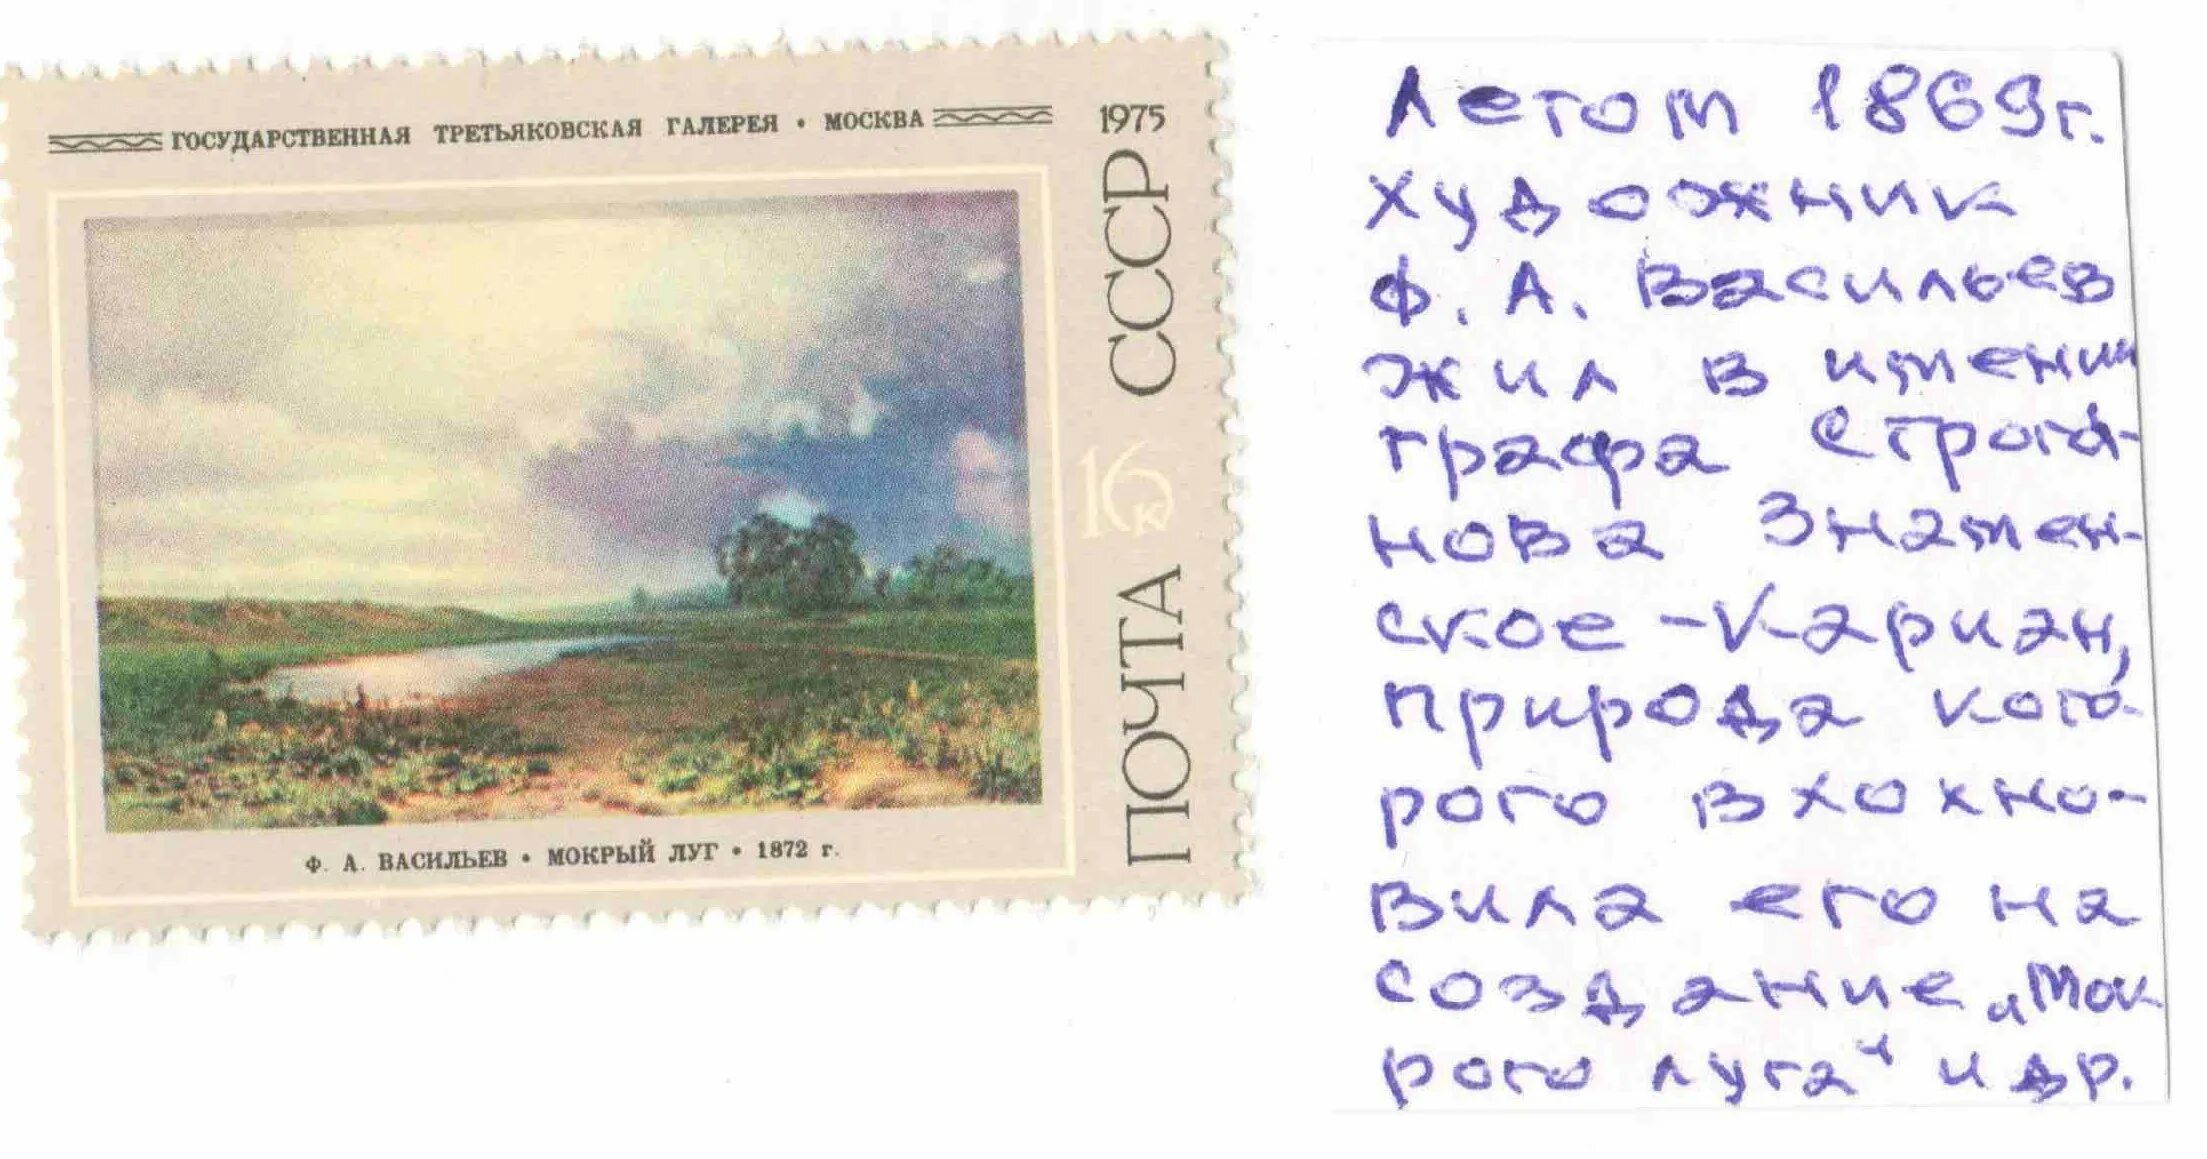 ГОСУДАРСТВЕННАЯ ТРЕТЬЯКОВСКАЯ ГАЛЕРЕЯ • МОСКВА
1975
СССР
16 К
ПОЧТА
Ф. А. ВАСИЛЬЕВ • МОКРЫЙ ЛУГ • 1872 г.
Летом 1869г.
художник
Ф. А. Васильев
жил в имении
графа Строга-
нова Знамен-
ское - Кариан,
природа кото-
рого вхохно-
вила его на
создание „Мок
рого луга“ и др.